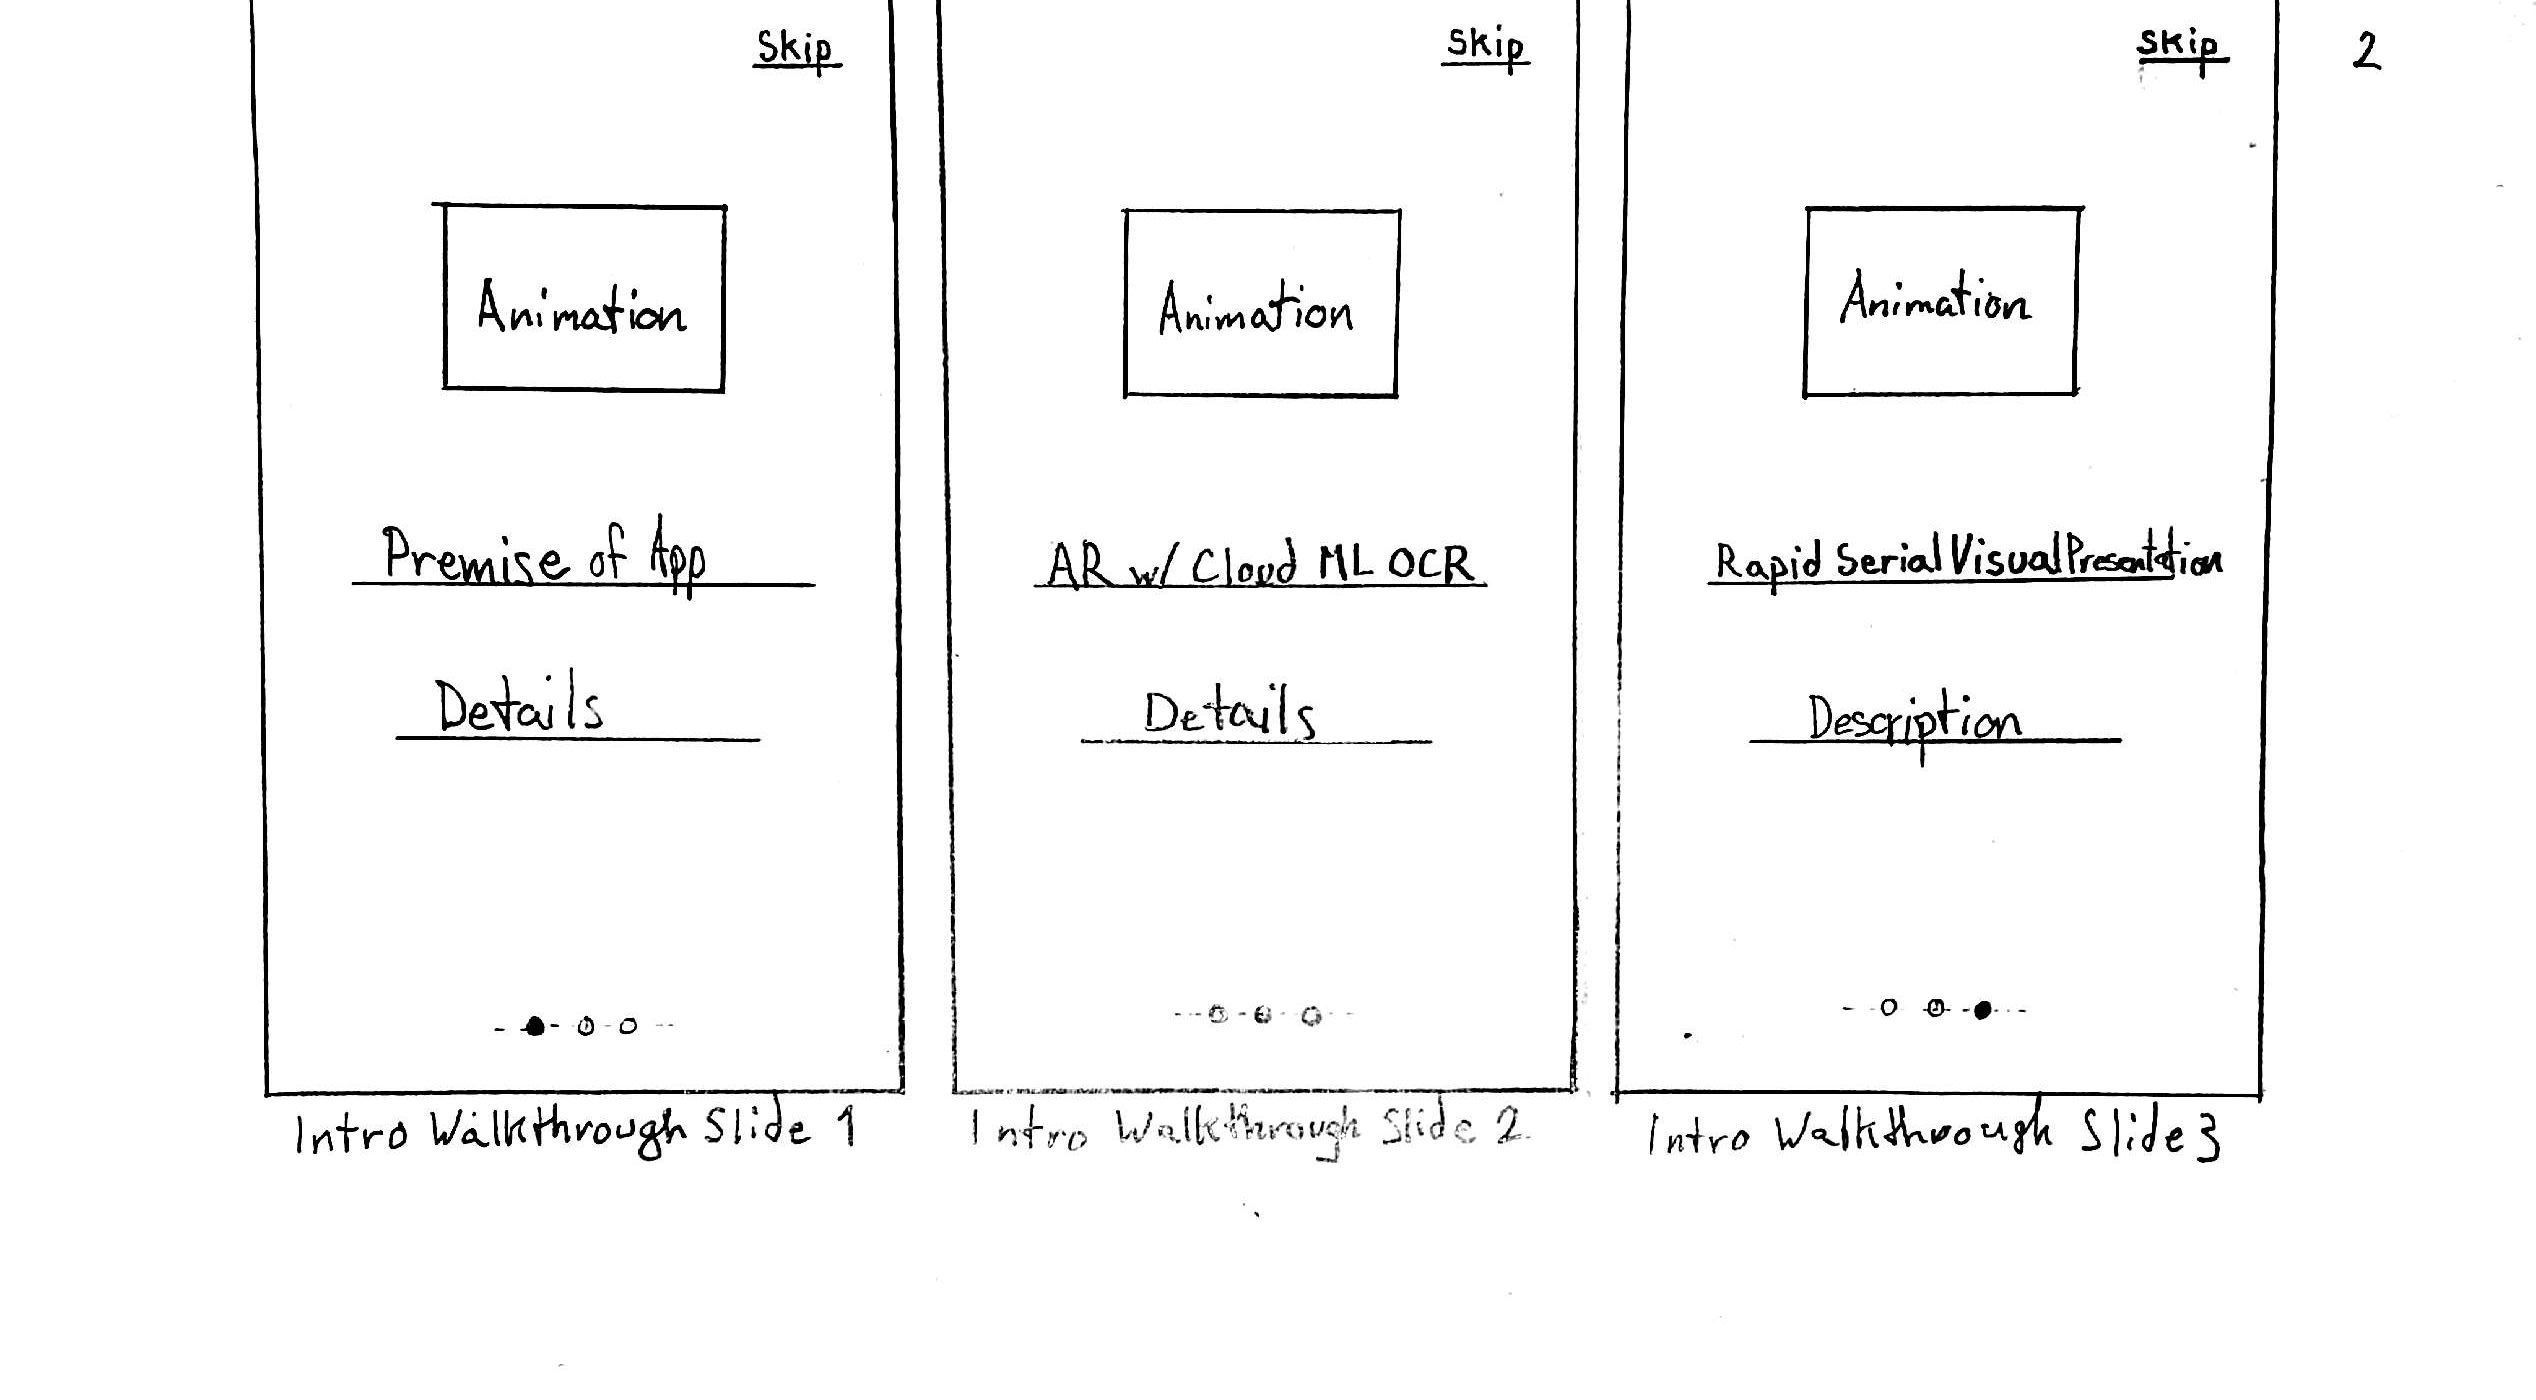 Skip
Animation
Premise of App
Details
Intro Walkthrough Slide 1
Skip
Animation
AR w/ Cloud ML OCR
Details
Intro Walkthrough Slide 2
Skip
Animation
Rapid Serial Visual Presentation
Description
Intro Walkthrough Slide 3
2